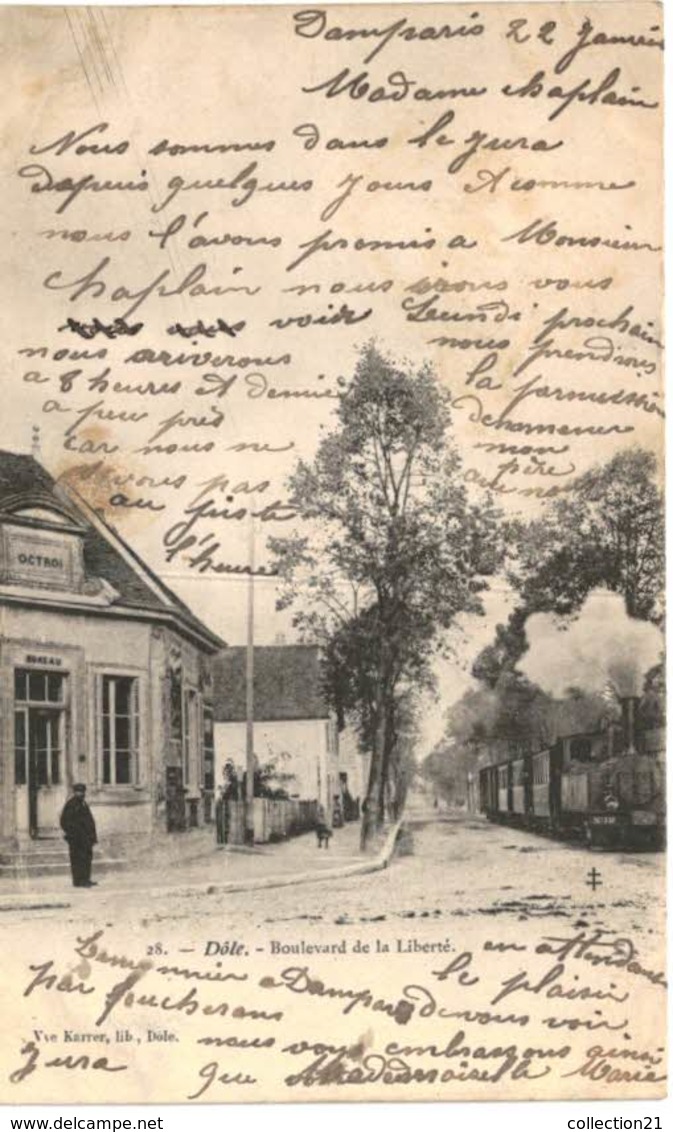 Damparis 22 Janvier
Madame chaplain
Nous sommes dans le jura
depuis quelques jours et comme
nous l'avons promis a Monsieur
chaplain nous irons vous
voir Lundi prochain
nous ariverons
a 8 heures et demie
a peu près
car nous ne
savons pas
au juste
l'heure
nous prendrons
la permission
denmener
mon
père
OCTROI
BUREAU
28. — Dôle. - Boulevard de la Liberté.
en attendant
le plaisir
de vous voir
nous vous embrassons ainsi
que Mademoiselle Marie
Lemonnier a Damparis
par foucherans
Jura
Vve Karrer, lib, Dôle.
collection21